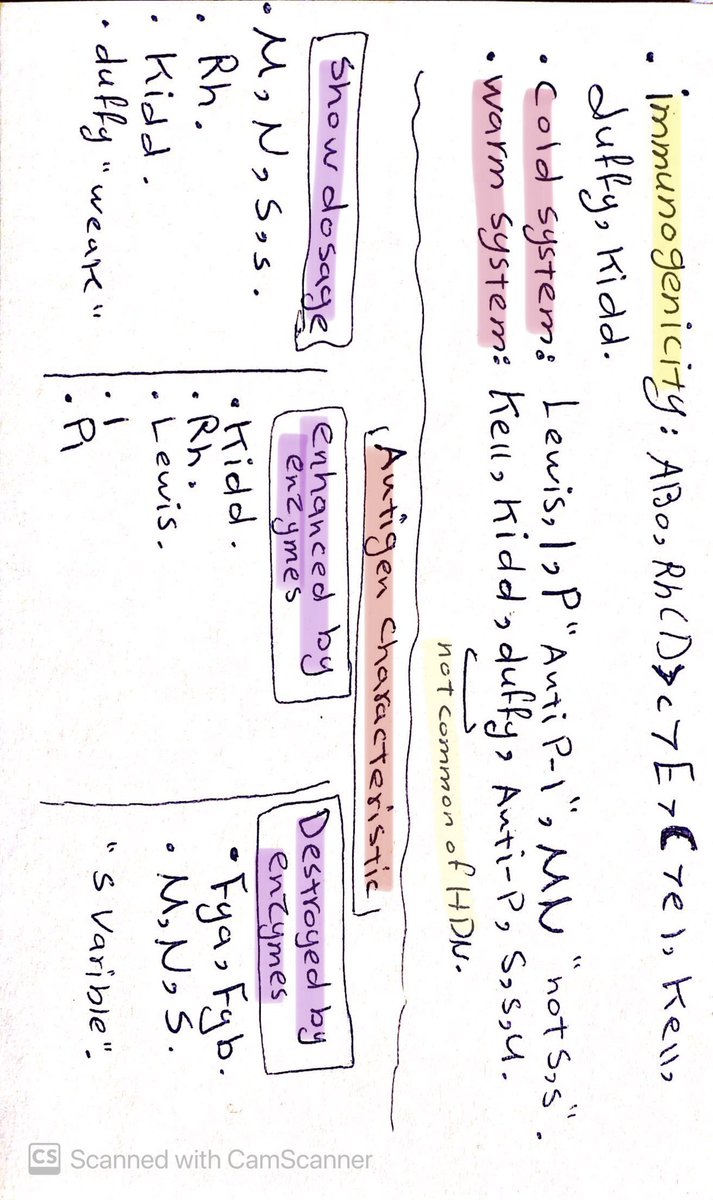 • immunogenicity: ABO, Rh(D>c>E>C>e), Kell,
duffy, Kidd.
• Cold system: Lewis, I, P "Anti P-1", MN "not S,s".
• warm system: Kell, Kidd, duffy, Anti-P, S,s,U.
not common of HDN.
"Antigen characteristic"
Show dosage
• M, N, S, s.
• Rh.
• Kidd.
• duffy "weak"
enhanced by
enzymes
• Kidd.
• Rh.
• Lewis.
• I
• P1
Destroyed by
enzymes
• Fya, Fyb.
• M, N, S.
"s varible".
CS Scanned with CamScanner